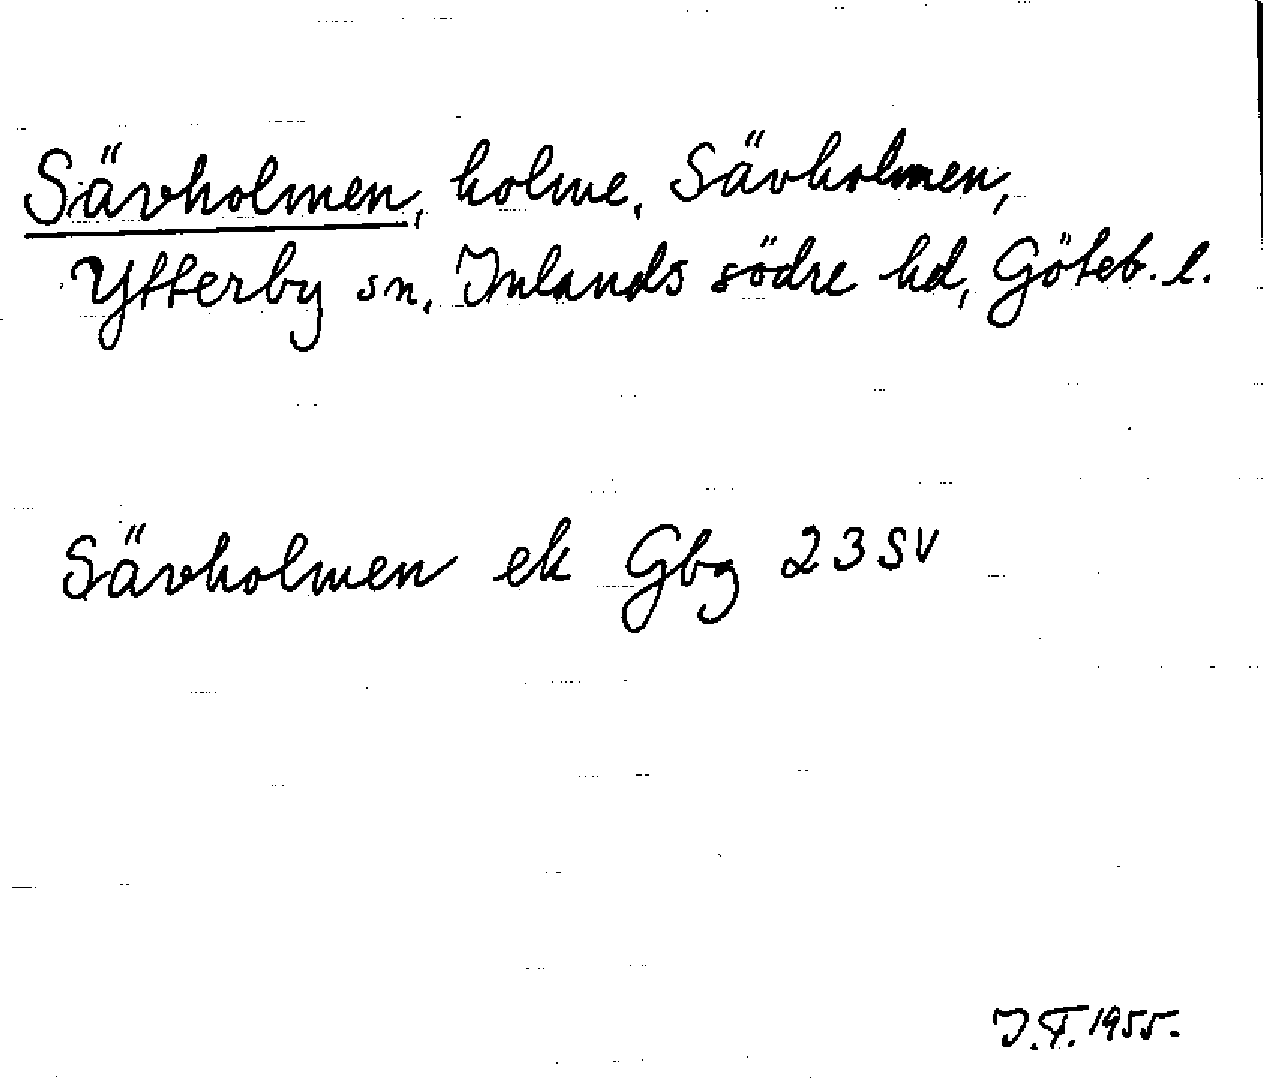 Sävholmen, holme, Sävholmen,
Ytterby sn, Inlands södre hd, Göteb. l.
Sävholmen ek Gbg 23 SV
J.T. 1955.